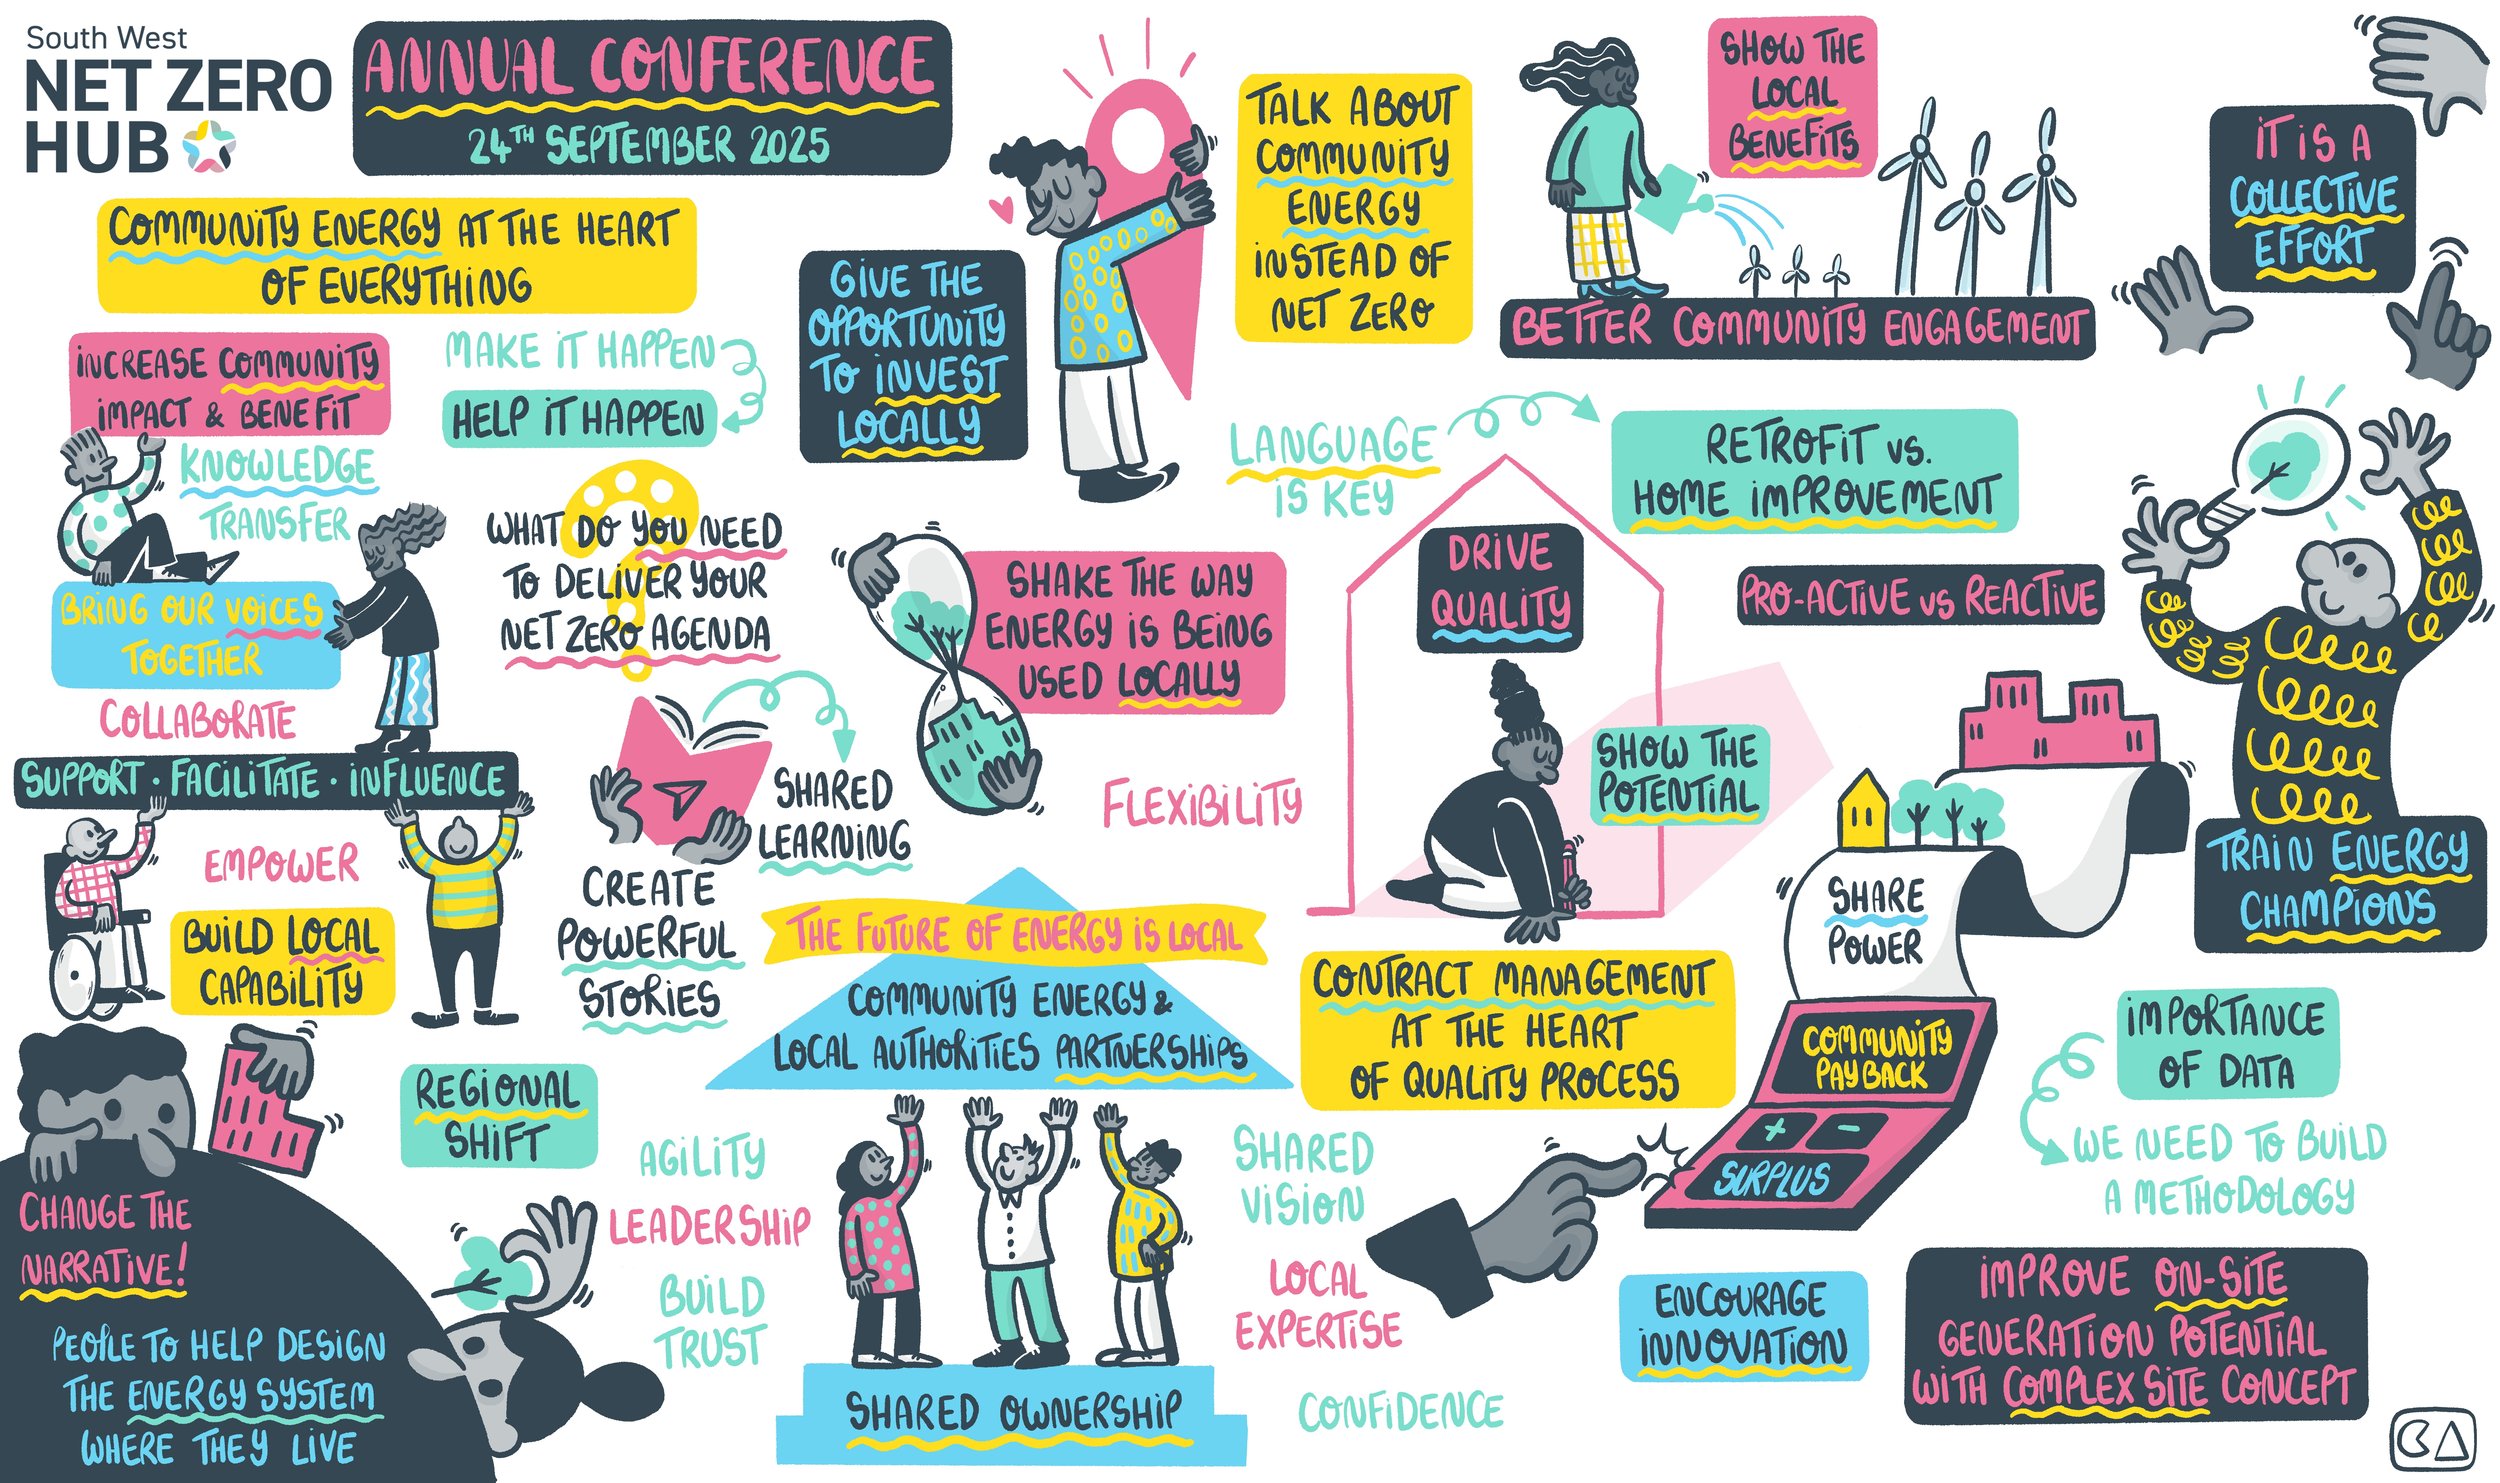 South West
NET ZERO
HUB
ANNUAL CONFERENCE
24TH SEPTEMBER 2025
COMMUNITY ENERGY AT THE HEART
OF EVERYTHING
INCREASE COMMUNITY
IMPACT & BENEFIT
MAKE IT HAPPEN
HELP IT HAPPEN
KNOWLEDGE
TRANSFER
BRING OUR VOICES
TOGETHER
COLLABORATE
SUPPORT · FACILITATE · INFLUENCE
EMPOWER
BUILD LOCAL
CAPABILITY
WHAT DO YOU NEED
TO DELIVER YOUR
NET ZERO AGENDA
SHARED
LEARNING
CREATE
POWERFUL
STORIES
GIVE THE
OPPORTUNITY
TO INVEST
LOCALLY
TALK ABOUT
COMMUNITY
ENERGY
INSTEAD OF
NET ZERO
SHOW THE
LOCAL
BENEFITS
BETTER COMMUNITY ENGAGEMENT
IT IS A
COLLECTIVE
EFFORT
LANGUAGE
IS KEY
RETROFIT VS.
HOME IMPROVEMENT
SHAKE THE WAY
ENERGY IS BEING
USED LOCALLY
FLEXIBILITY
DRIVE
QUALITY
SHOW THE
POTENTIAL
PRO-ACTIVE VS REACTIVE
TRAIN ENERGY
CHAMPIONS
SHARE
POWER
COMMUNITY
PAYBACK
+ -
SURPLUS
THE FUTURE OF ENERGY IS LOCAL
COMMUNITY ENERGY &
LOCAL AUTHORITIES PARTNERSHIPS
CONTRACT MANAGEMENT
AT THE HEART
OF QUALITY PROCESS
IMPORTANCE
OF DATA
WE NEED TO BUILD
A METHODOLOGY
CHANGE THE
NARRATIVE!
PEOPLE TO HELP DESIGN
THE ENERGY SYSTEM
WHERE THEY LIVE
REGIONAL
SHIFT
AGILITY
LEADERSHIP
BUILD
TRUST
SHARED
VISION
LOCAL
EXPERTISE
CONFIDENCE
SHARED OWNERSHIP
ENCOURAGE
INNOVATION
IMPROVE ON-SITE
GENERATION POTENTIAL
WITH COMPLEX SITE CONCEPT